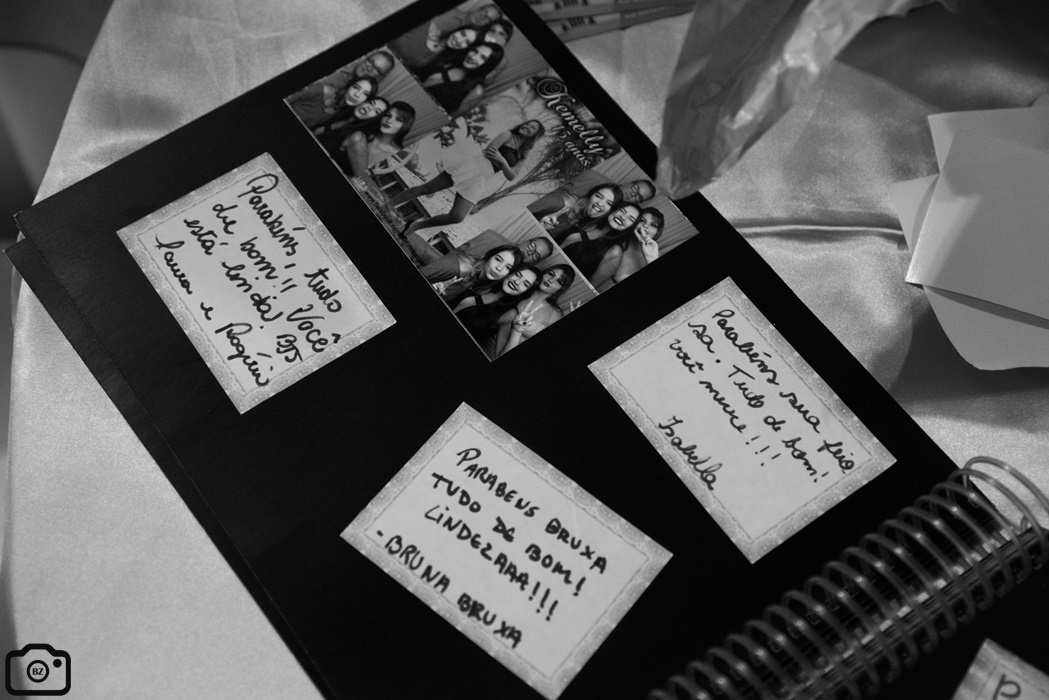 Kemelly
15 anos
Parabéns, tudo
de bom!! Você
está linda! BJS
Laura e Roquin
Parabéns sua feio
sa. Tudo de bom!
você merece!!!
Isabella
PARABENS BRUXA
TUDO DE BOM!
LINDEZAAA!!!
-BRUNA BRUXA
BZ